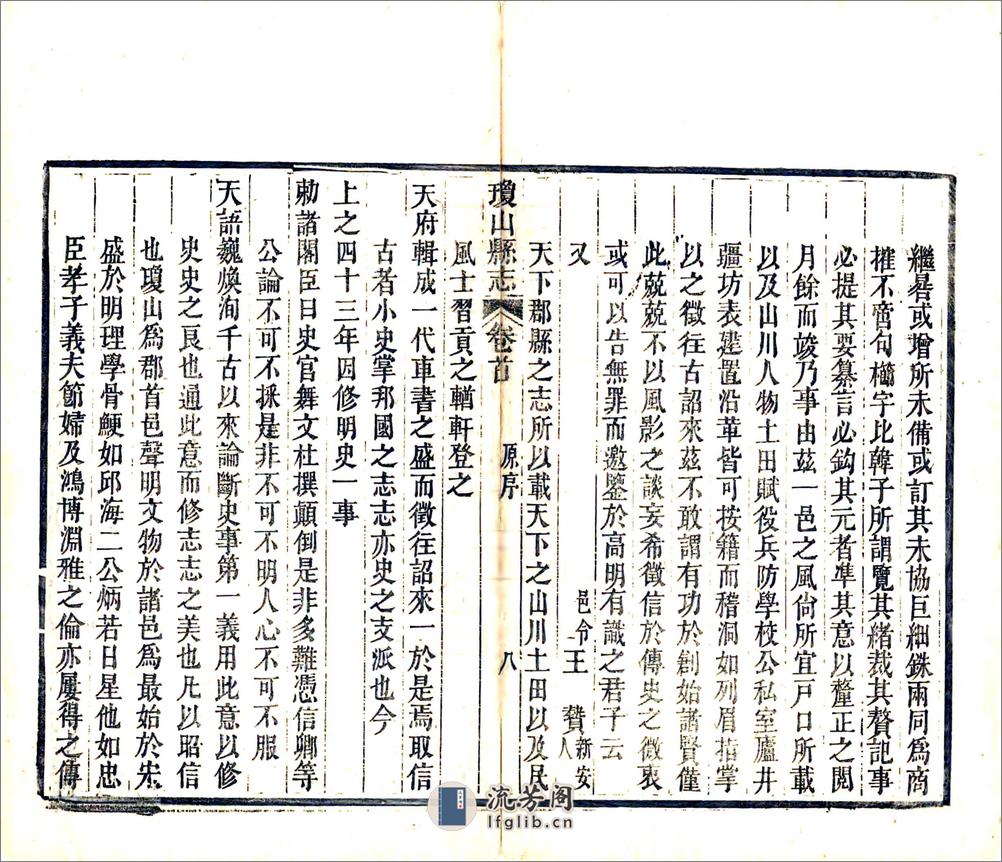 繼晷或增所未備或訂其未協巨細銖兩同爲商
榷不啻句櫛字比韓子所謂覽其緒裁其贅記事
必提其要纂言必鈎其元者凖其意以釐正之閱
月餘而竣乃事由茲一邑之風尙所宜戸口所載
以及山川人物土田賦役兵防學校公私室廬井
疆坊表建置沿革皆可按籍而稽洞如列眉指掌
以之徵往古詔來茲不敢謂有功於創始諸賢僅
此兢兢不以風影之談妄希徵信於傳史之微衷
或可以告無罪而邀鑒於高明有識之君子云
又 邑令王 贊新安人
天下郡縣之志所以載天下之山川土田以及民
風士習貢之輶軒登之
瓊山縣志 卷首 原序 八
天府輯成一代車書之盛而徵往詔來一於是焉取信
古者小史掌邦國之志志亦史之支派也今
上之四十三年因修明史一事
勅諸閣臣曰史官舞文杜撰顛倒是非多難憑信卿等
公論不可不採是非不可不明人心不可不服
天語巍煥洵千古以來論斷史事第一義用此意以修
史史之良也通此意而修志志之美也凡以昭信
也瓊山爲郡首邑聲明文物於諸邑爲最始於宋
盛於明理學骨鯁如邱海二公炳若日星他如忠
臣孝子義夫節婦及鴻博淵雅之倫亦屢得之傳
流芳阁
lfglib.cn